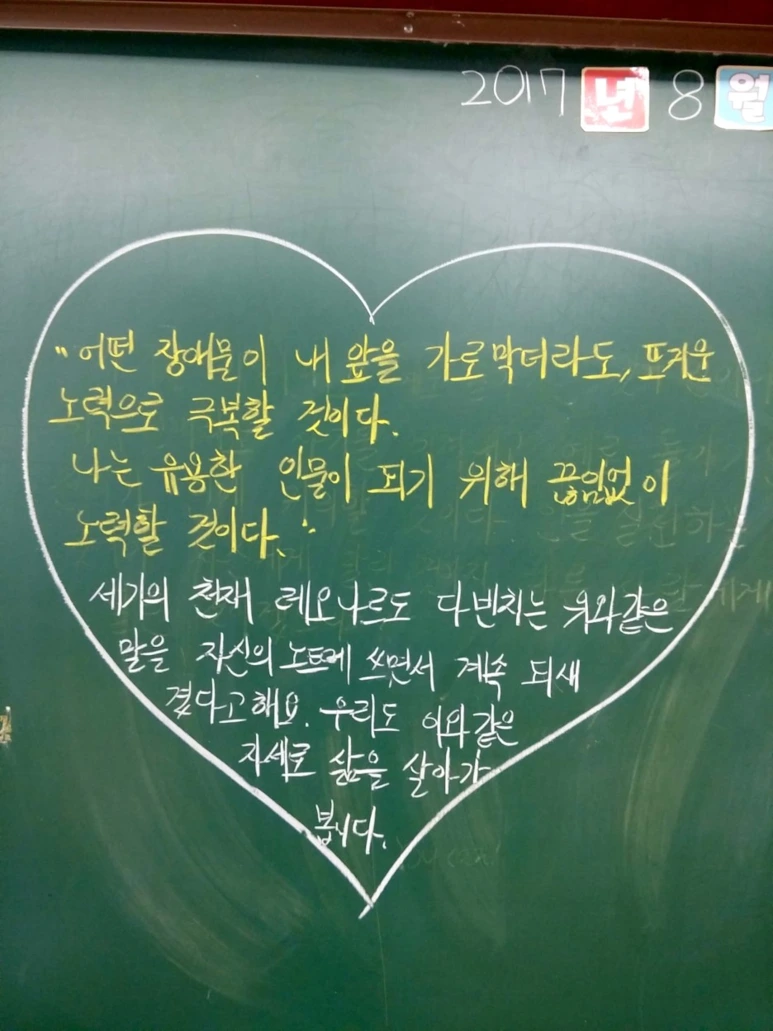 2017 년 8 월
"어떤 장애물이 내 앞을 가로막더라도, 뜨거운
노력으로 극복할 것이다.
나는 유용한 인물이 되기 위해 끊임없이
노력할 것이다."
세기의 천재 레오나르도 다빈치는 위와같은
말을 자신의 노트에 쓰면서 계속 되새
겼다고해요. 우리도 이와같은
자세로 삶을 살아가
봅시다.